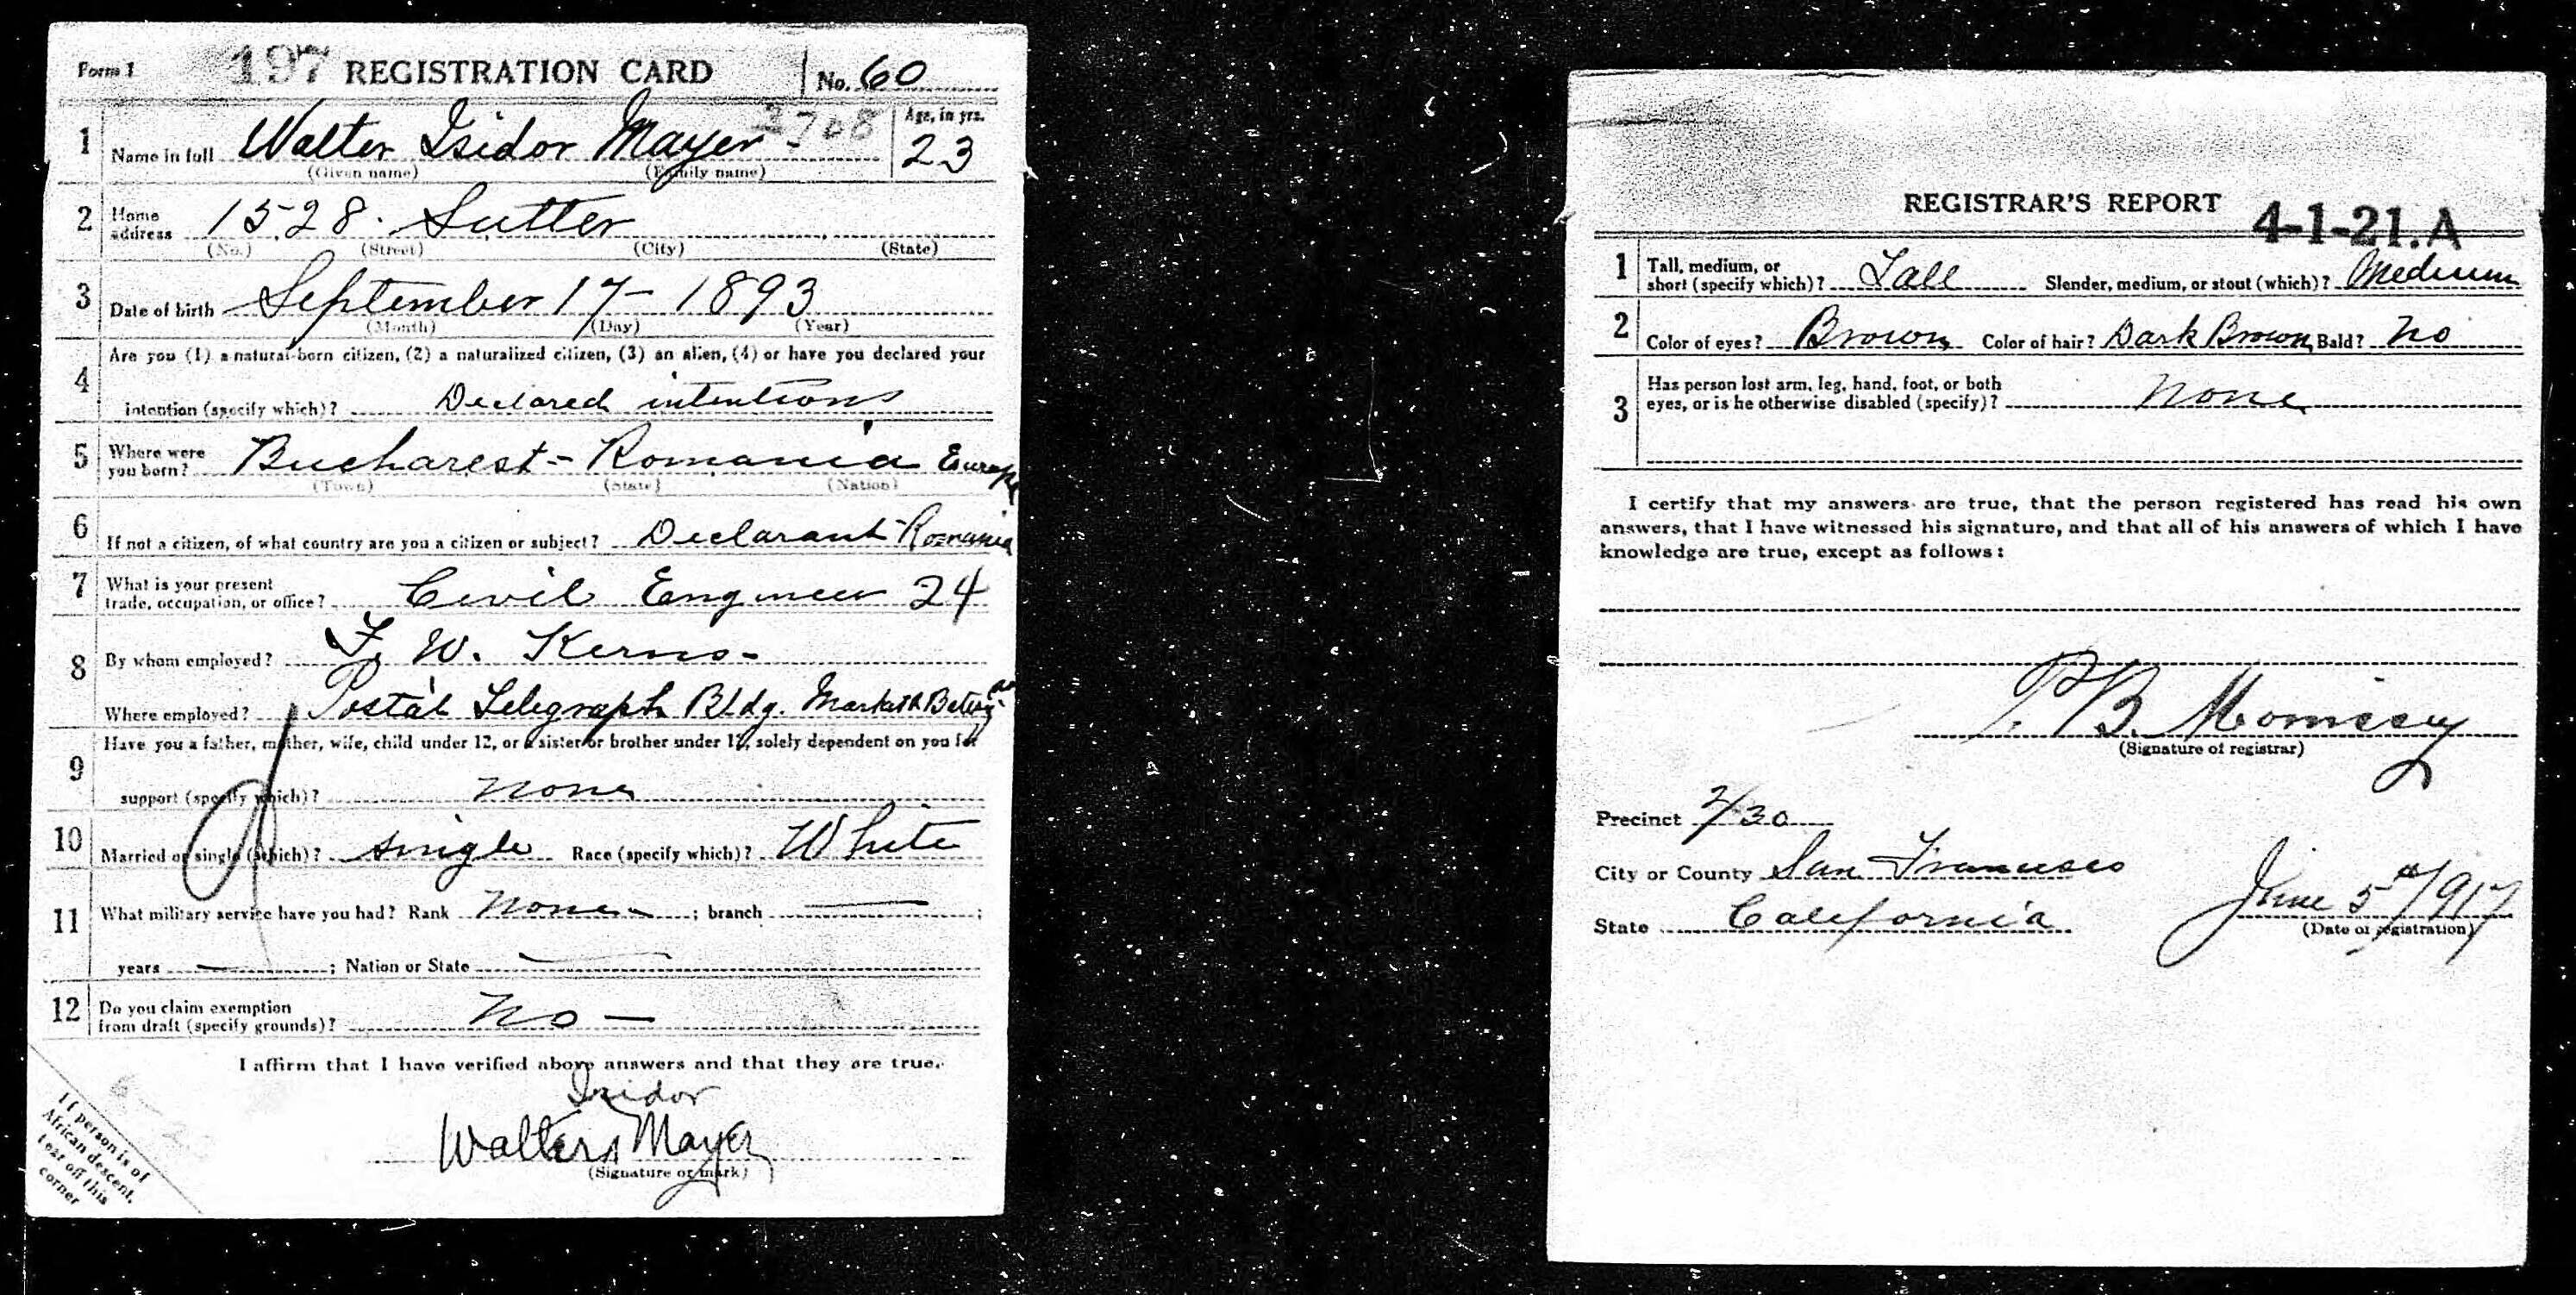 Form 1 197 REGISTRATION CARD No. 60
1 Name in full Walter Isidor Mayer 3708 Age, in yrs. 23
(Given name) (Family name)
2 Home address 1528 Sutter
(No.) (Street) (City) (State)
3 Date of birth September 17 - 1893
(Month) (Day) (Year)
4 Are you (1) a natural-born citizen, (2) a naturalized citizen, (3) an alien, (4) or have you declared your
intention (specify which)? Declared intentions
5 Where were you born? Bucharest - Romania Europe
(Town) (State) (Nation)
6 If not a citizen, of what country are you a citizen or subject? Declarant - Romania
7 What is your present trade, occupation, or office? Civil Engineer 24
8 By whom employed? F. W. Kerns -
Where employed? Postal Telegraph Bldg. Market & Battery
9 Have you a father, mother, wife, child under 12, or a sister or brother under 12, solely dependent on you for
support (specify which)? none
10 Married or single (which)? single Race (specify which)? White
11 What military service have you had? Rank none ; branch — ;
years — ; Nation or State —
12 Do you claim exemption from draft (specify grounds)? No —
I affirm that I have verified above answers and that they are true.
Isidor
Walter Mayer
(Signature or mark)
If person is of
African descent,
tear off this
corner
REGISTRAR'S REPORT 4-1-21.A
1 Tall, medium, or short (specify which)? Tall Slender, medium, or stout (which)? Medium
2 Color of eyes? Brown Color of hair? Dark Brown Bald? No
3 Has person lost arm, leg, hand, foot, or both
eyes, or is he otherwise disabled (specify)? None
I certify that my answers are true, that the person registered has read his own
answers, that I have witnessed his signature, and that all of his answers of which I have
knowledge are true, except as follows:
(Signature of registrar)
Precinct 2/30
City or County San Francisco
State California June 5th 1917
(Date of registration)